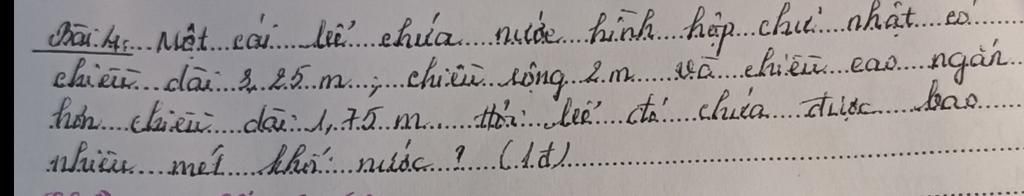 Bài 4: Một cái bể chứa nước hình hộp chữ nhật có
chiều dài 3,25 m; chiều rộng 2 m và chiều cao ngắn
hơn chiều dài 1,75 m thì bể đó chứa được bao
nhiêu mét khối nước? (1đ)